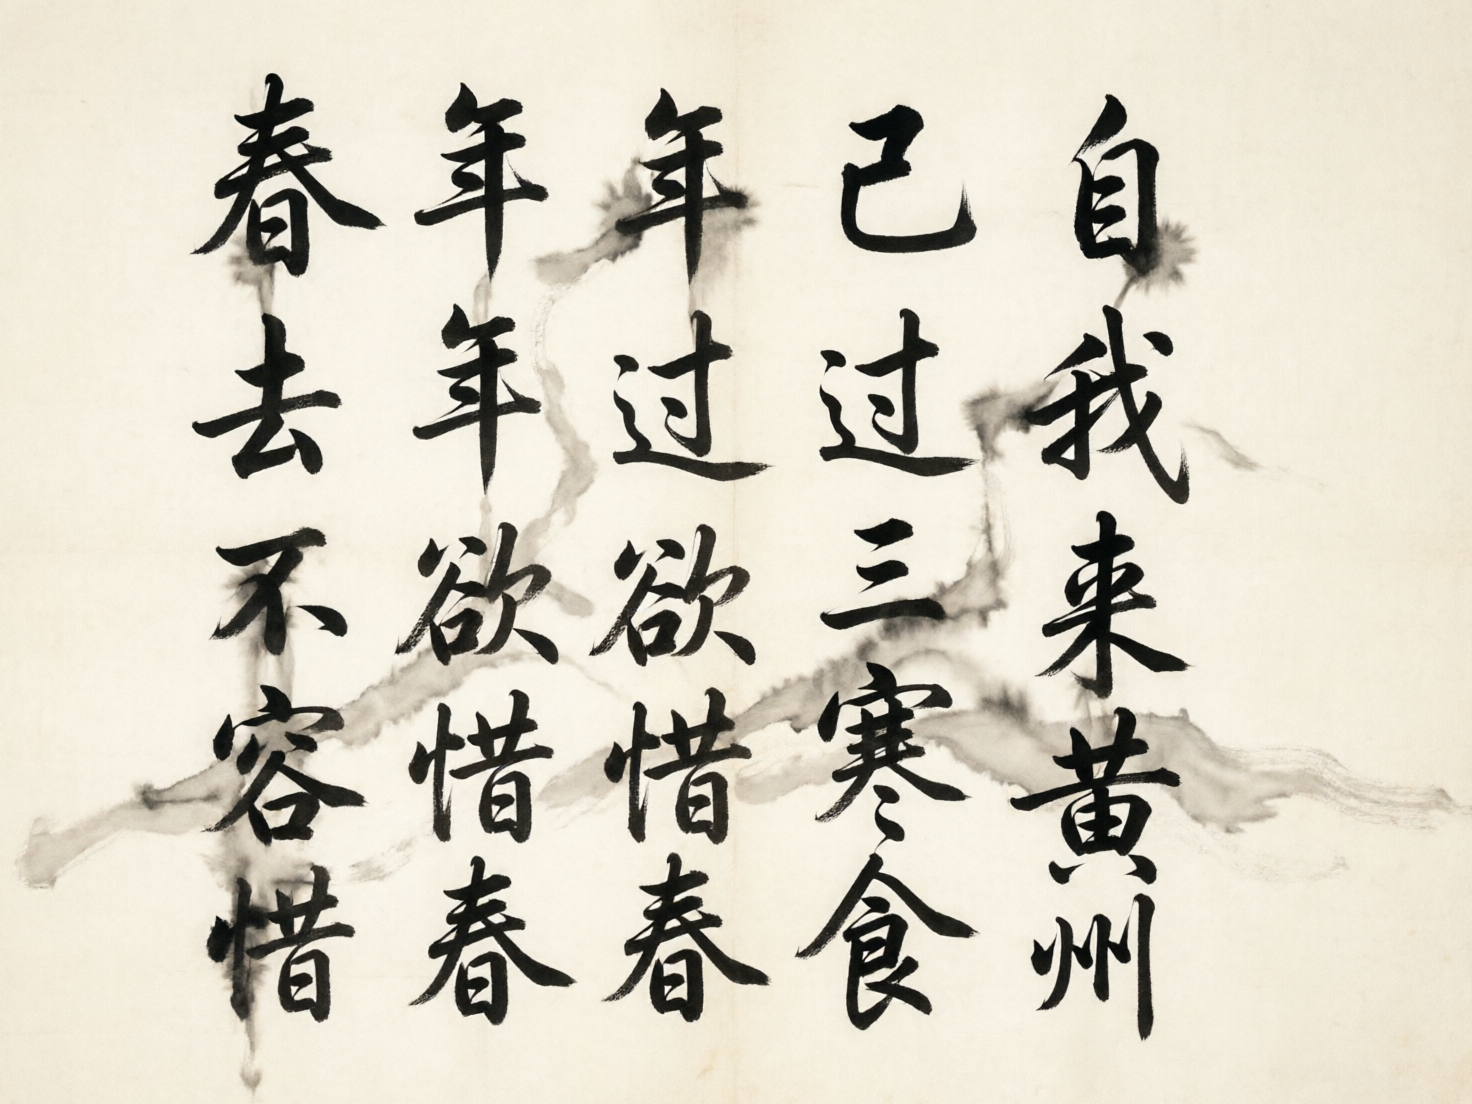 自我来黄州
已过三寒食
年过欲惜春
年年欲惜春
春去不容惜